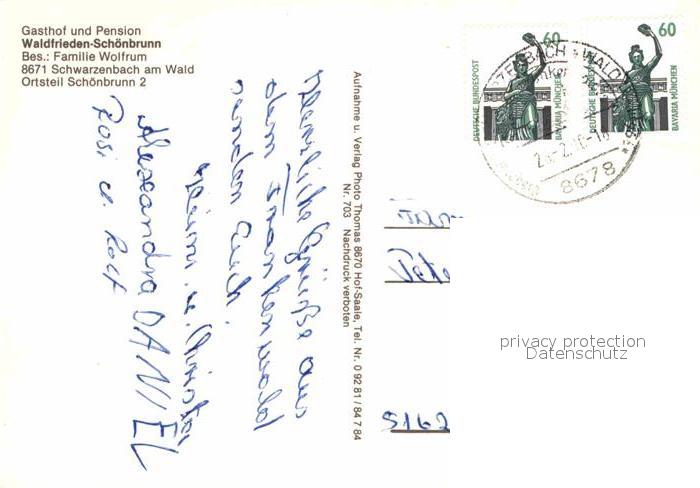 Gasthof und Pension
Waldfrieden-Schönbrunn
Bes.: Familie Wolfrum
8671 Schwarzenbach am Wald
Ortsteil Schönbrunn 2
Herzliche Grüße aus
dem Frankenwald
senden Euch
Heini u. Christa,
Alexandra DANIEL
Rosi u. Rolf
Aufnahme u. Verlag Photo Thomas 8670 Hof-Saale, Tel. Nr. 0 92 81 / 84 7 84
Nr. 703 Nachdruck verboten
60
DEUTSCHE BUNDESPOST
BAVARIA MÜNCHEN
60
DEUTSCHE BUNDESPOST
BAVARIA MÜNCHEN
8678
Fam
Pete
5162
privacy protection
Datenschutz